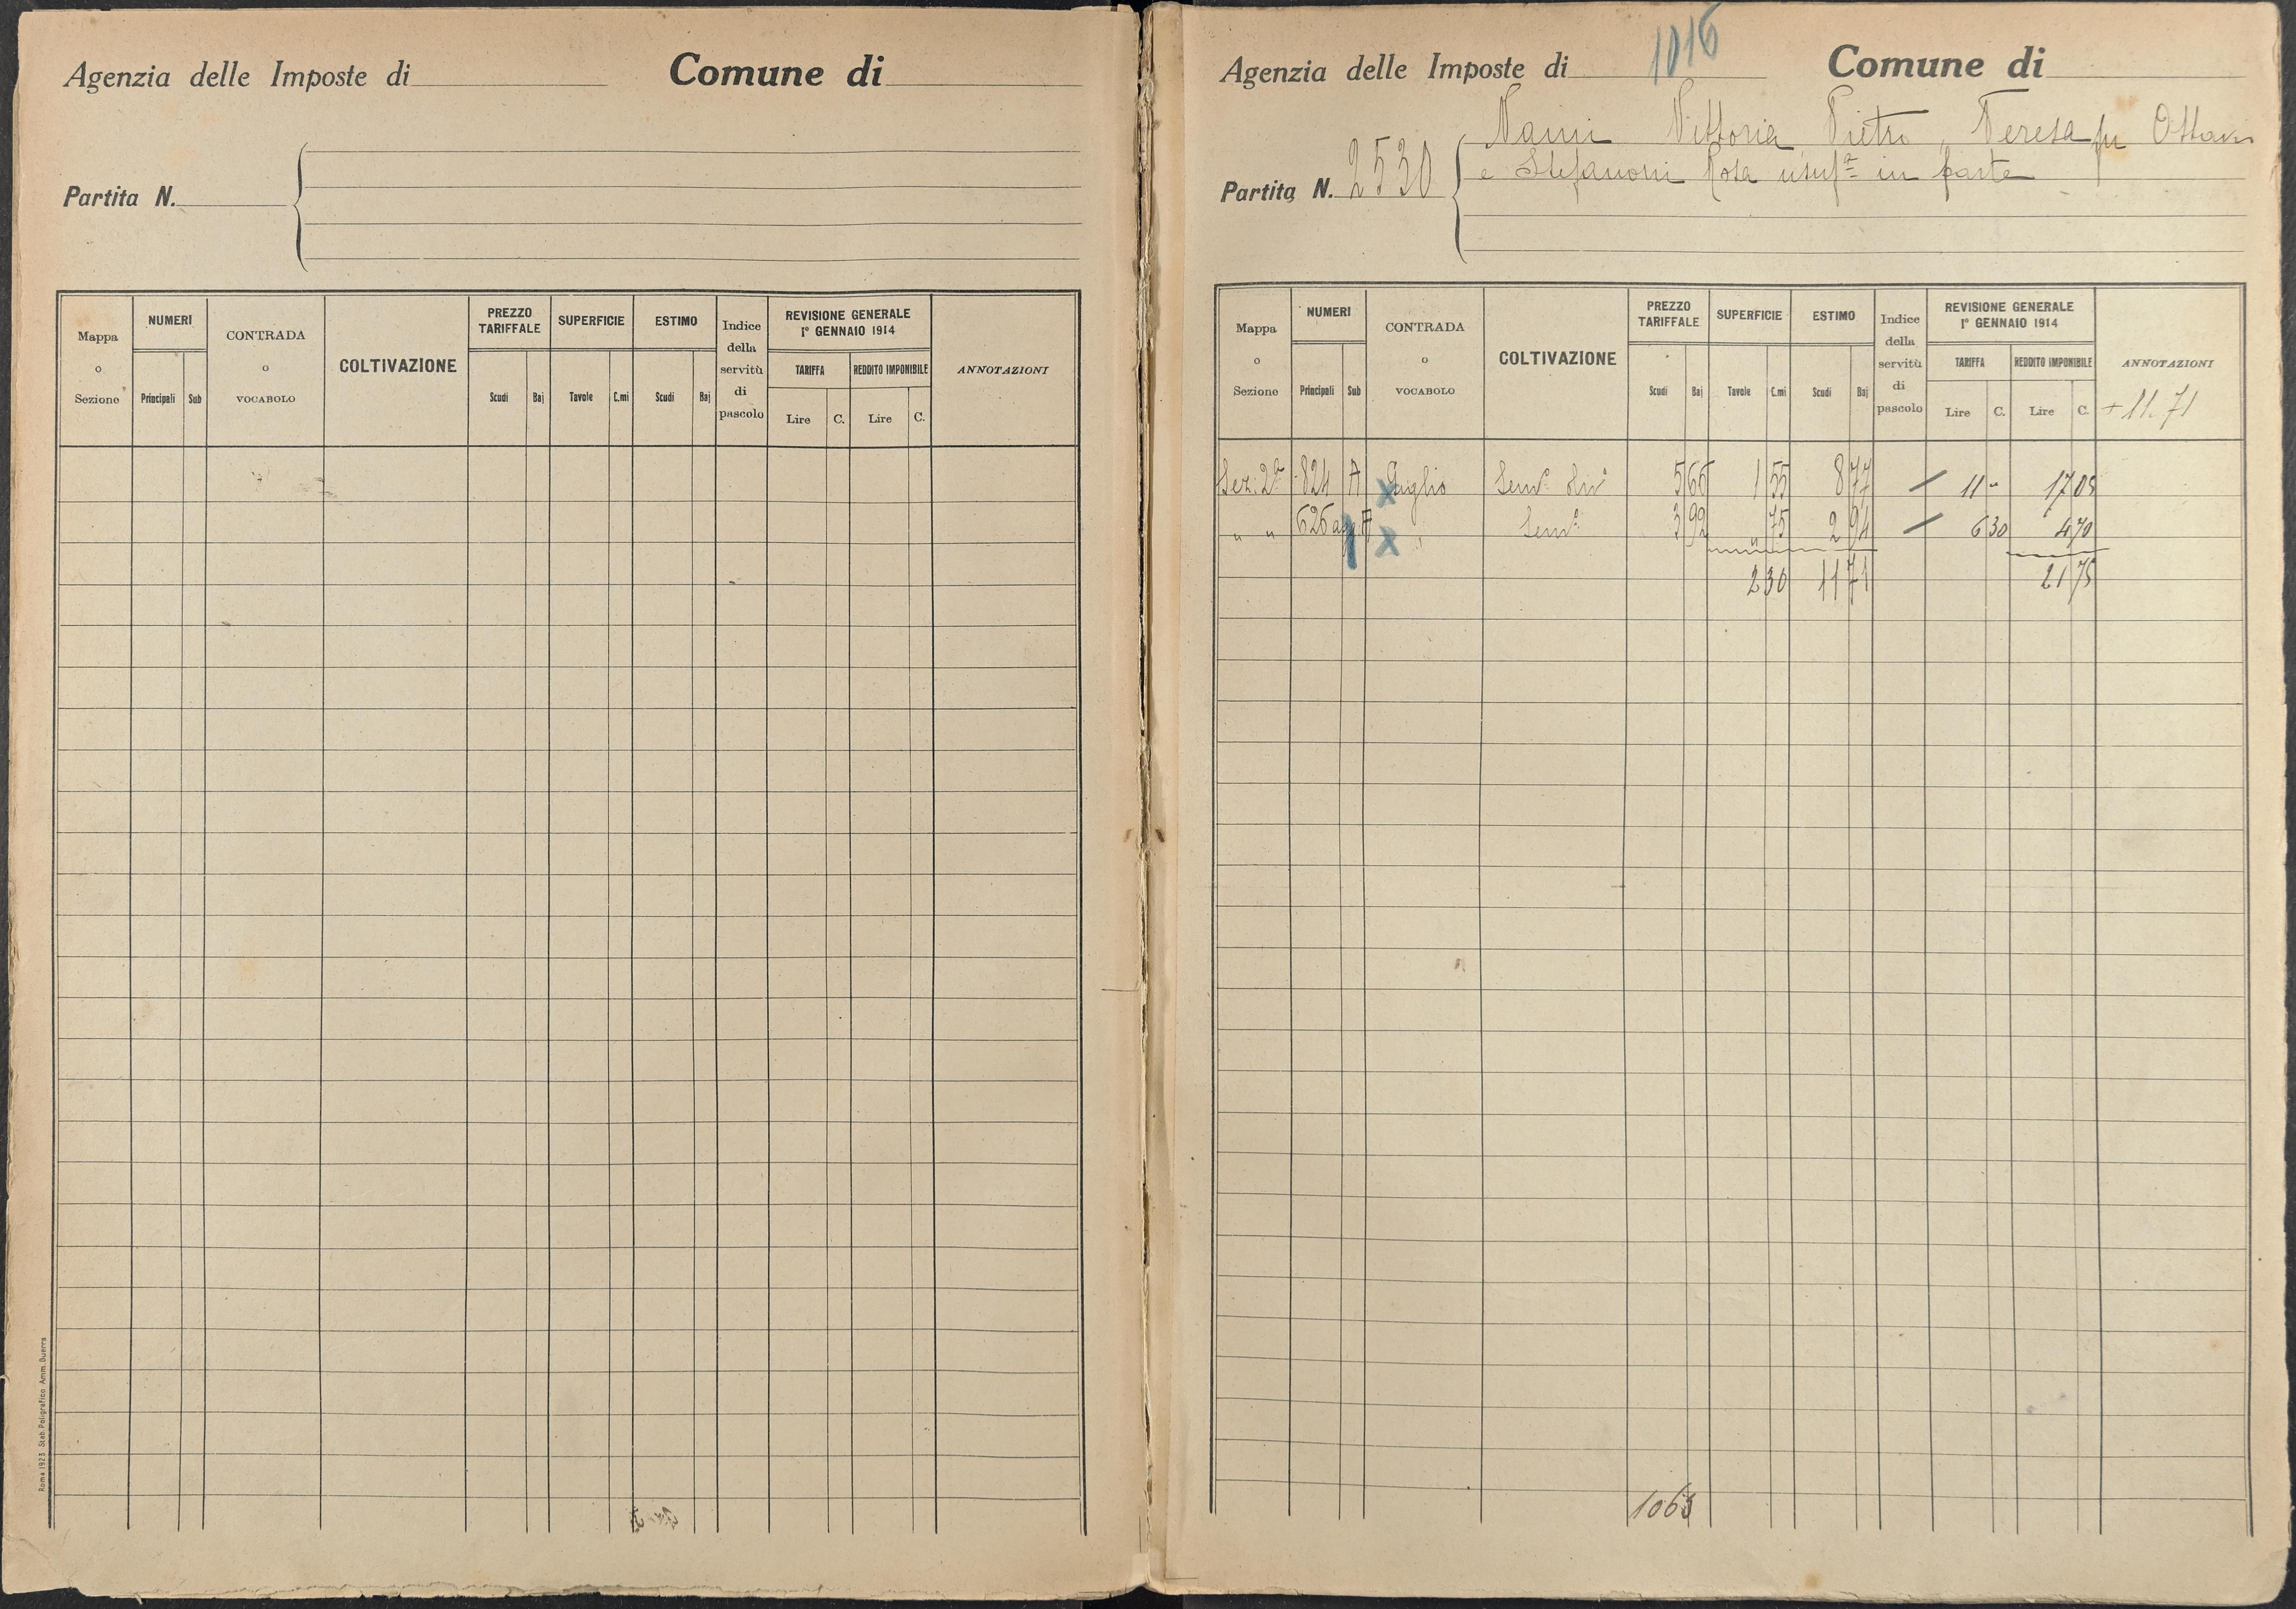 Agenzia delle Imposte di Comune di
Partita N.
Mappa o Sezione NUMERI Principali Sub CONTRADA o VOCABOLO COLTIVAZIONE PREZZO TARIFFALE Scudi Baj SUPERFICIE Tavole C.mi ESTIMO Scudi Baj Indice della servitù di pascolo REVISIONE GENERALE 1° GENNAIO 1914 TARIFFA Lire C. REDDITO IMPONIBILE Lire C. ANNOTAZIONI
Roma 1923 Stab. Poligrafico Amm. Guerra
1016
Agenzia delle Imposte di Comune di
Nami Vittoria Pietro, Teresa fu Ottavi
Partita N. 2530 e Stefanoni Rosa usufª in parte
Mappa o Sezione NUMERI Principali Sub CONTRADA o VOCABOLO COLTIVAZIONE PREZZO TARIFFALE Scudi Baj SUPERFICIE Tavole C.mi ESTIMO Scudi Baj Indice della servitù di pascolo REVISIONE GENERALE 1° GENNAIO 1914 TARIFFA Lire C. REDDITO IMPONIBILE Lire C. ANNOTAZIONI
+ 11.71
Sez. 2ª 824 A Semº Olivº 5 66 1 55 8 77 / 11 " 17 05
" " 626 A " Semº 3 92 " 75 2 94 / 6 30 4 70
2 30 11 71 21 75
1063